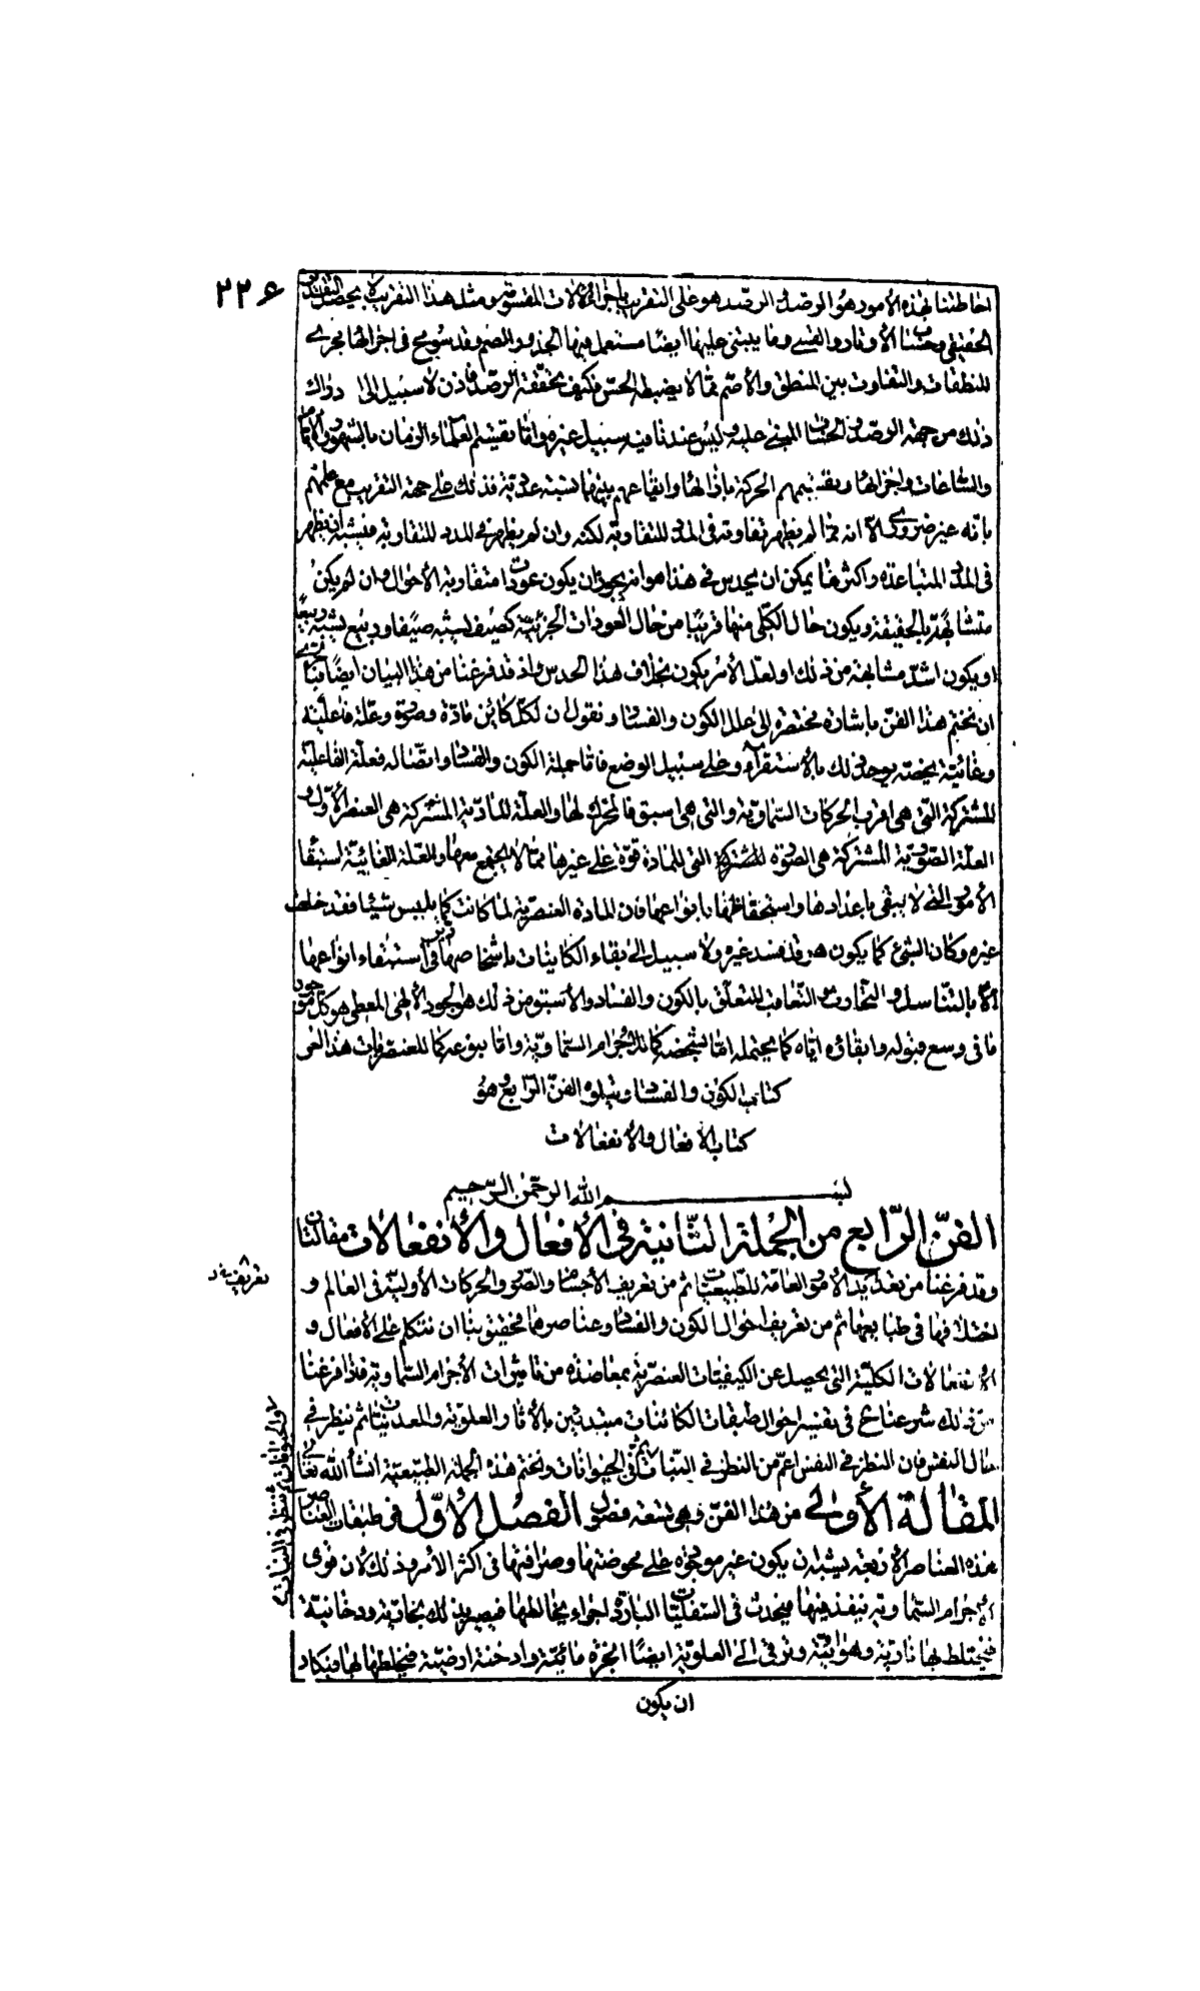 ٢٢۶
احاطتنا بهذه الأمور هو الرصد والرصد هو على التقريب باجزاء الالات المقسومة ومثل هذا التقريب لا يحصل التقدير
الحقيقي وحساب الأوتار والقسي وما يبتنى عليها ايضا مستعمل فيها الجذور الصم وقد سومح في اجرائها مجرى
المنطقات والتفاوت بين المنطق والأصم مما لا يضبطه الحس فكيف يحققه الرصد فاذن لا سبيل الى ادراك
ذلك من جهة الرصد والحساب المبنى عليه وليس عندنا فيه سبيل غيره واما تقسيم العلماء الزمان بالشهور والأيام
والساعات واجزائها وتقسيمهم الحركة بازائها وايقاعهم بينهما نسبة عددية فذلك على جهة التقريب مع علمهم
بانه غير ضرورى الا انه مما لم يظهر تفاوته فى المدد المتقاربة لكنه وان لم يظهر في المدد المتقاربة فيشبه ان يظهر
فى المدد المتباعدة واكثر ما يمكن ان يحدس في هذا هو انه يجوز ان يكون عودات متقاربة الأحوال وان لم يكن
متشابهة بالحقيقة ويكون حال الكلى منها قريبا من حال العودات الجزئية كصيف يشبه صيفا وربيع يشبه ربيعا
او يكون اشد مشابهة من ذلك او لعل الأمر يكون بخلاف هذا الحدس واذ قد فرغنا من هذا البيان ايضا فحرى بنا
ان نختم هذا الفن باشارة مختصرة الى علل الكون والفساد ونقول ان لكل كائن مادة وصورة وعلة فاعلية
وغائية يخصه يوجد ذلك بالأستقراء وعلى سبيل الوضع فاما جملة الكون والفساد واتصاله فعلته الفاعلية
المشتركة التى هى اقرب الحركات السماوية والتى هى اسبق فالمحرك لها والعلة المادية المشتركة هى العنصر الأول و
العلة الصورية المشتركة هى الصورة المشتركة التى للمادة قوة على غيرها مما لا يجتمع معها والعلة الغائية استبقاء
الأمور التى لا تبقى باعدادها واستحفاظها بانواعها فان المادة العنصرية لما كانت كما يلبس شيئا فقد خلعت
غيره وكان الشئ كما يكون هو قد فسد غيره ولا سبيل الى بقاء الكاينات باشخاصها دبر فى استبقاء انواعها
الا بالتناسل والتحارث والتعاقب المتعلق بالكون والفساد والأسبق من ذلك هو الجود الألهى المعطى هو كل موجود
ما فى وسع قبوله وابقاؤه اياه كما يحتمله اما بشخصه كما للأجرام السماوية واما بنوعه كما للعنصريات هذا الفن
كتاب الكون والفساد ويتلوه الفن الرابع هو
كتاب الافعال والأنفعالات
بسم الله الرحمن الرحيم
الفن الرابع من الجملة الثانية فى الأفعال والأنفعالات مقالتان
وقد فرغنا من تعديد الأمور العامة للطبيعيات ثم من تعريف الأجسام والصور والحركات الأولية فى العالم و
اختلافها فى طبايعها ثم من تعريف احوال الكون والفساد وعناصرها فحقيق بنا ان نتكلم على الأفعال و
الأنفعالات الكلية التى يحصل عن الكيفيات العنصرية بمعاضدة من تاثيرات الأجرام السماوية فاذا فرغنا
من ذلك شرعنا ح فى تفسير احوال طبقات الكائنات مبتدئين بالأثار العلوية والمعدنيات ثم ننظر في
حال النفس فان النظر فى النفس اعم من النظر فى النبات والحيوانات ونختم هذه الجملة الطبيعية انشاء الله تعالى
المقالة الأولى من هذا الفن وهى تسعة فصول الفصل الأول فى طبقات العناصر
هذه العناصر الأربعة يشبه ان يكون غير موجودة على محوضتها وصرافتها فى اكثر الأمر وذلك لأن قوى
الأجرام السماوية تنفذ فيها فيحدث فى السفليات الباردة اجزاء يخالطها فيصير بذلك بخارية ودخانية
فيختلط بها نارية وهوائية وترقى الى العلوية ايضا ابخرة مائية وادخنة ارضية فيخلطها بها فيكاد
ان يكون